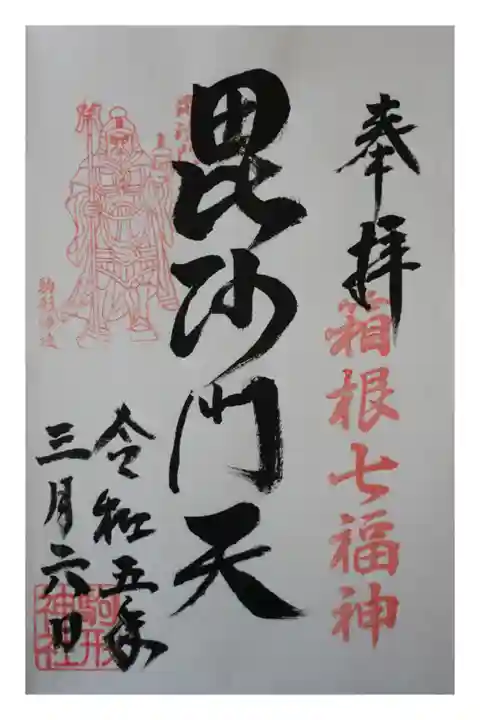 奉拝
箱根七福神
毘沙門天
令和五年
三月六日
駒形
神社